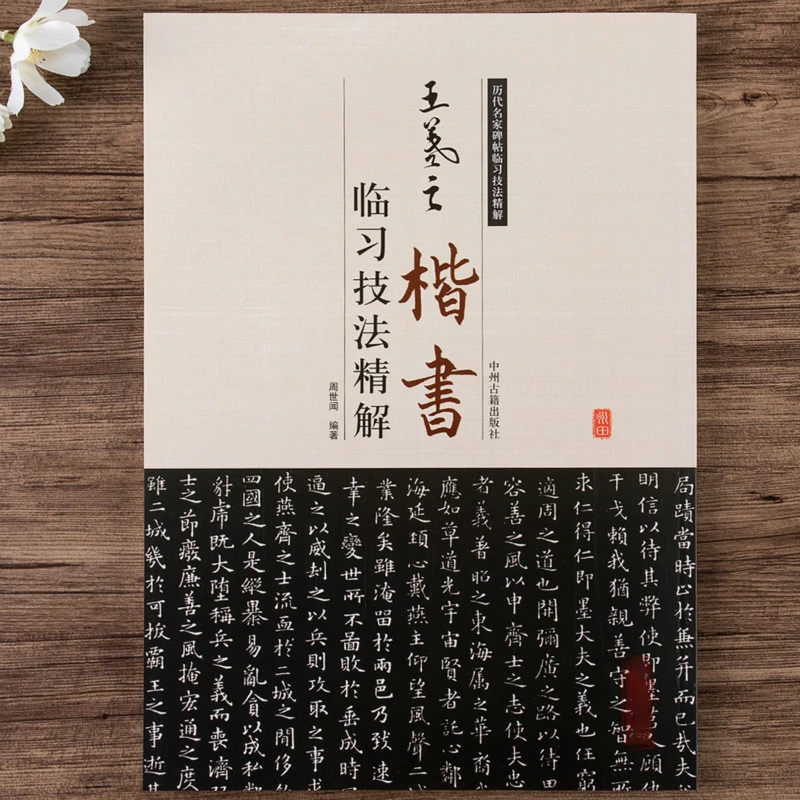 历代名家碑帖临习技法精解
中州古籍出版社
王羲之
楷書
临习技法精解
周世闻 编著
局蹟當時止於兼并而已哉夫
明信以待其弊使即墨人顧仇
干戈賴我猶親善守之智無所
求仁得仁即墨大夫之義也任窮
適周之道也開彌廣之路以待田
容善之風以申齊士之志使夫忠
者義著昭之東海属之華裔
應如草道光宇宙賢者託心鄰
海延頸心戴燕主仰望風聲二城
業隆矣雖淹留於兩邑乃致速
幸之變世所不啚敗於垂成時
逼之以威刧之以兵則攻取之事求
使燕齊之士流血於二城之間侈
四國之人是縱暴易亂貪以成私鄰
豺虎既大墮稱兵之義而喪濟
士之節廢廉善之風掩宏通之度
雖二城幾於可拔霸王之事逝其